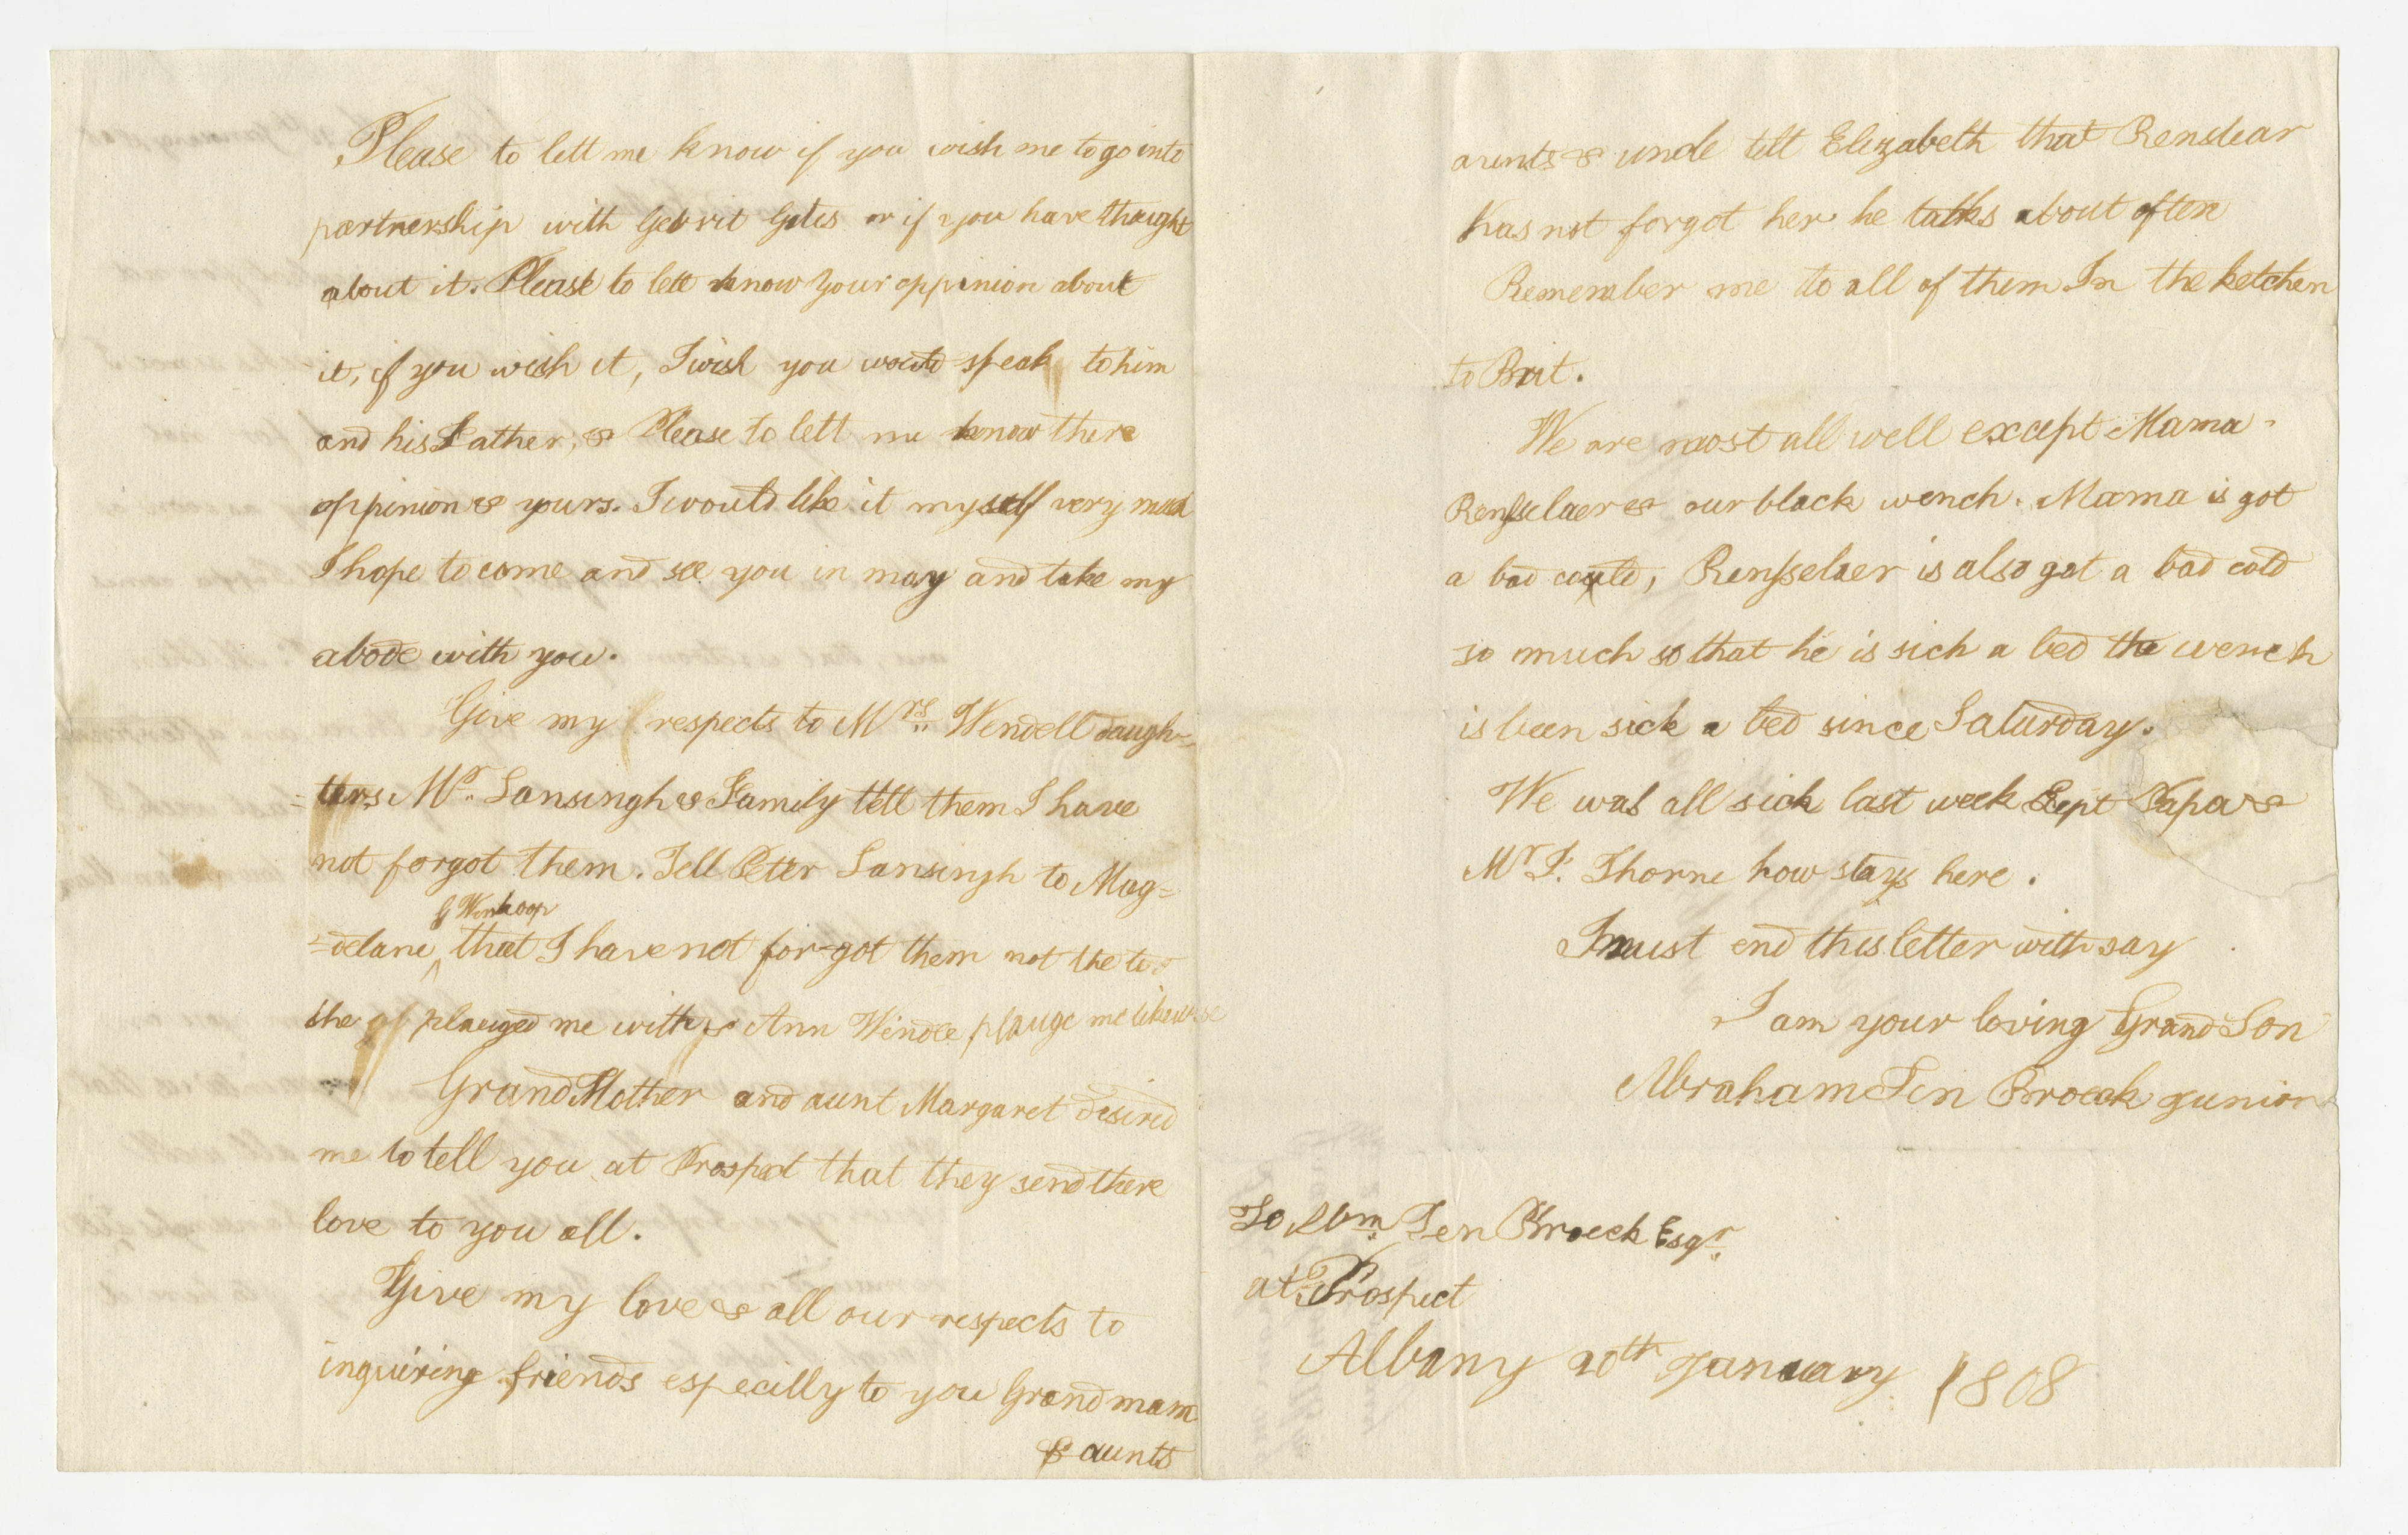 Please to lett me know if you wish me to go into
partnership with Gerrit Gates or if you have thaught
about it. Please to lett know your oppinion about
it, if you wish it, I wish you would speak to him
and his Father, & Please to lett me know there
oppinion & yours. I would like it myself very much
I hope to come and see you in may and take my
abode with you.
Give my respects to Mrs. Wendell daugh=
=ters. Mr. Lansingh & Family tell them I have
not forgot them. Tell Peter Lansingh to Mag=
G Winkoop
=delane ^ that I have not for-got them not the
she plauged me with & Ann Wendle plauge me likewise
Grand Mother and aunt Margaret desired
me to tell you at Prospect that they send there
love to you all.
Give my love & all our respects to
inquiring friends especilly to you Grand mam
& aunts
aunts & uncle tell Elizabeth that Renslear
has not forgot her he talks about often
Remember me to all of them In the ketchen
to Brit.
We are most all well except Mama
Rensselaer & our black wench. Mama is got
a bad could, Rensselaer is also got a bad cold
so much so that he is sich a bed the wench
is been sick a bed since Saturday.
We was all sick last week Sept Papa &
Mr. T. Thorne how stays here.
I must end this letter with say
I am your loving Grand Son
Abraham Ten Broeck junior
To Abm. Ten Broeck Esqr.
at Prospect
Albany 20th January 1808